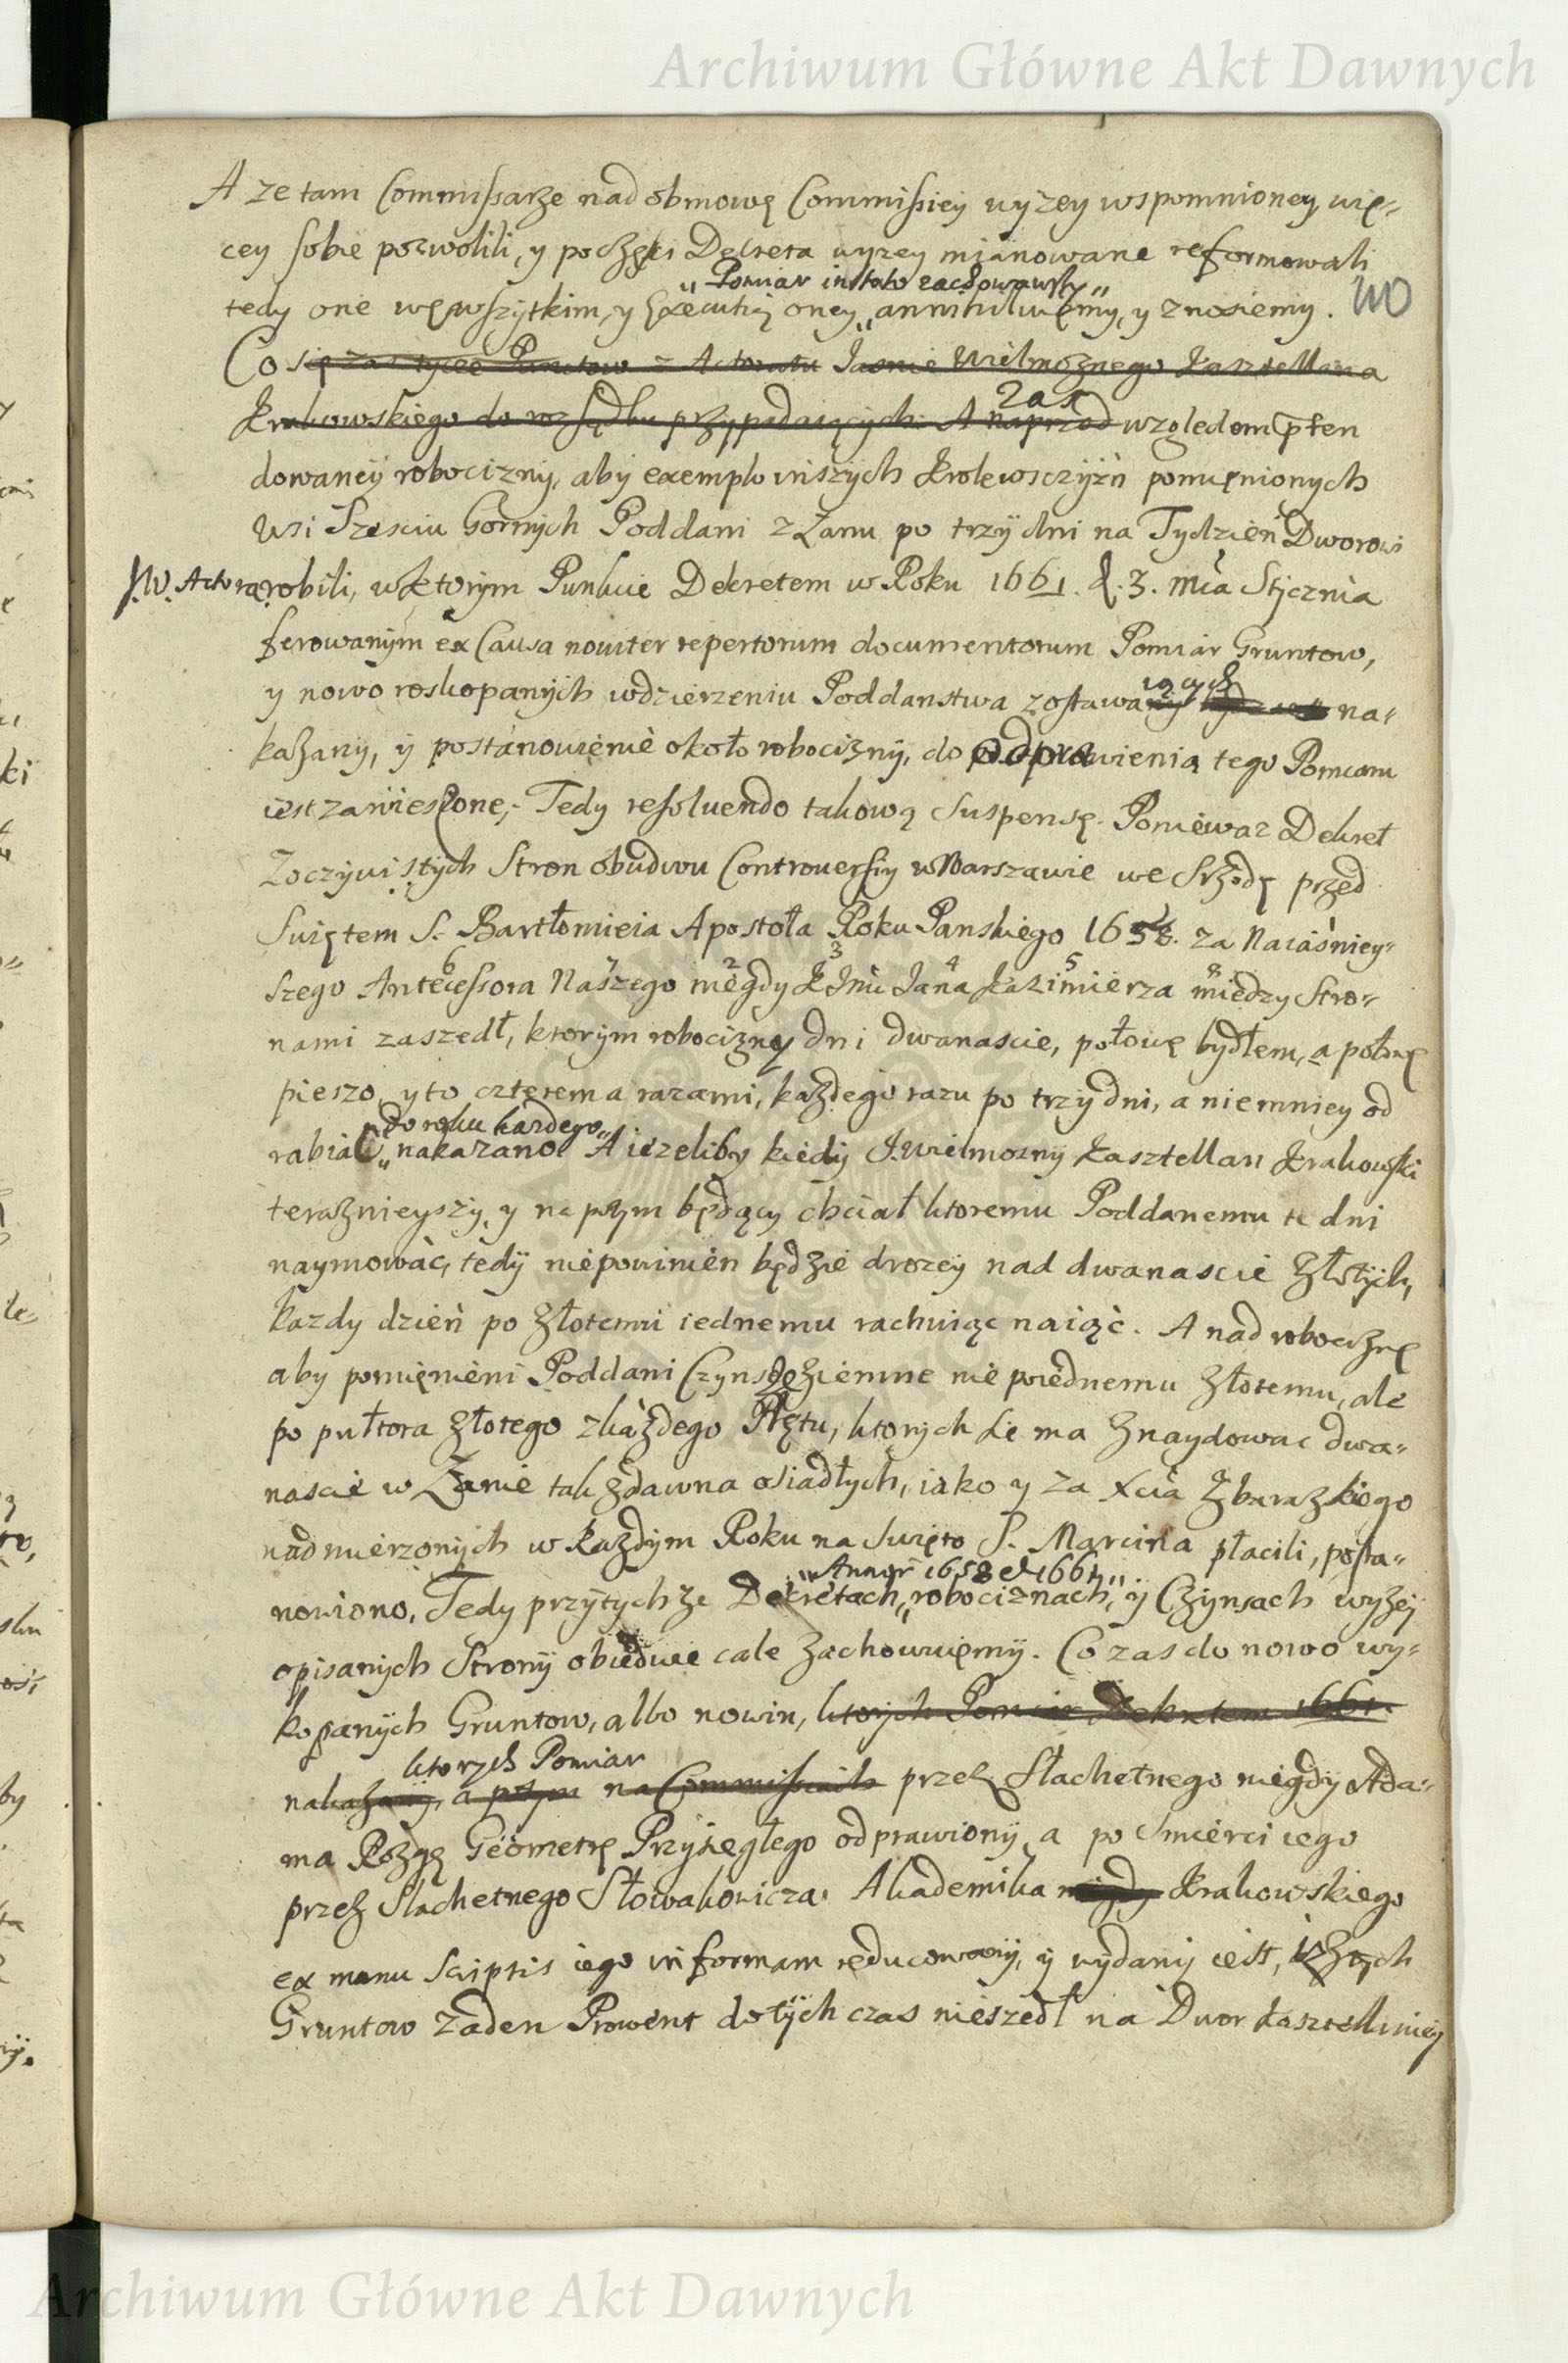 Archiwum Główne Akt Dawnych
A ze tam Commissarze nad obmowę Commissiey wyzey wspomnioney, wię-
cey sobie pozwolili, y poczęści Dekreta wyzey mianowane reformowali
„Pomiar in toto zachowawszy„
tedy one wewszytkim, y Executią oney „annihiluiemy, y znosiemy.
110
Co się zas tycze Punctow z Actoratu Jasnie Wielmoznego Kasztellana
zas
Krakowskiego do rozsądku przypadaiących: A naprzod względem prten
dowaney robocizny, aby exemplo inszych Krolewsczyzn pomięnionych
Wsi Szesciu Gornych Poddani z Łanu po trzy dni na Tydzien Dworowi
J.W. Actora robili, wktorym Punkcie Dekretem w Roku 1661. d. 3. mca Stycznia
ferowanym ex Causa noviter repertorum documentorum Pomiar Gruntow,
iących
y nowo roskopanych wdzierzeniu Poddanstwa zostawa na-
kazany, y postanowienie około robocizny, do odprawienia tego Pomiaru
iest zawieszone, Tedy resoluendo takową Suspensę. Poniewaz Dekret
Zoczywistych Stron obudwu Controuersiy w Warszawie we Srzodę przed
Swiętem S. Bartłomieia Apostoła Roku Panskiego 1658. za Naiaśniey-
6 7 2 3 4 5 8
szego Antecessora Naszego niegdy K Jmci Jana Kazimierza między Stro-
nami zaszedł, ktorym robocizny dni dwanascie, połowę bydłem, a połowę
pieszo, y to czterema razami, kazdego razu po trzy dni, a niemniey od
do roku kazdego„
rabiać „nakazano. A iezeliby kiedy J. Wielmozny Kasztellan Krakowski
teraznieyszy, y na potym będący chciał ktoremu Poddanemu te dni
naymować, tedy niepowinien będzie drozey nad dwanascie złotych,
kazdy dzień po złotemu iednemu rachuiąc naiąć. A nad robociznę
aby pomięnieni Poddani Czynsze ziemne nie poiednemu złotemu, ale
po pułtora złotego zkazdego Prętu, ktorych sie ma znaydowac dwa-
nascie w Łanie tak zdawna osiadłych, iako y za Xcia Zbarazkiego
nadmierzonych w kazdym Roku na Swięto S. Marcina płacili, posta-
„Annor 1658 et 1661„
nowiono, Tedy przytychze Dekretach, „robociznach, y Czynsach wyzey
opisanych Strony obiedwie cale zachowuiemy. Co zas do nowo wy-
kopanych Gruntow, albo nowin, ktorych Pomiar Dekretem 1661.
ktorych Pomiar
nakazany, a potym na Commissiach przez Slachetnego niegdy Ada-
ma Rozgę Geometrę Przysięgłego odprawiony, a po Smierci iego
przez Slachetnego Słowakowicza Akademika niegdy Krakowskiego
ex manu scriptis iego in formam reducowany, y wydany iest, iz z tych
Gruntow zaden Prowent do tych czas nieszedł na Dwor kasztellaniey
Archiwum Główne Akt Dawnych